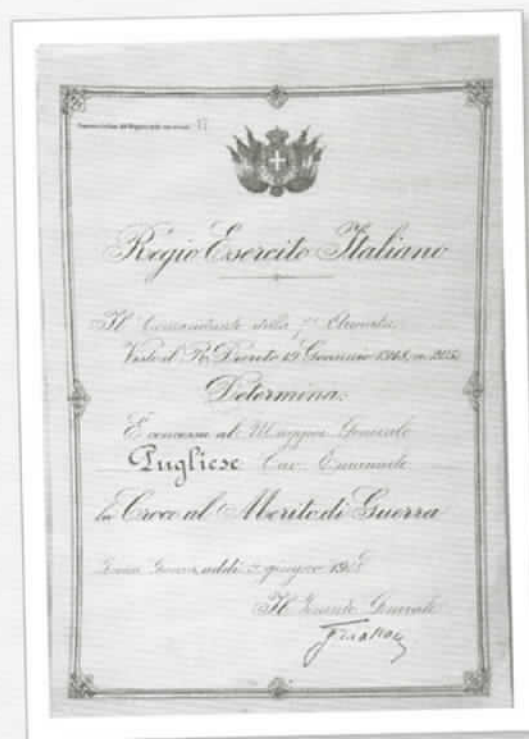 Regio Esercito Italiano
Il Comandante della 7ª Armata
Visto il R. Decreto 19 Gennaio 1918, n. 205
Determina:
È concessa al Maggior Generale
Pugliese Cav. Emanuele
la Croce al Merito di Guerra
addì 2 giugno 191
Il Tenente Generale